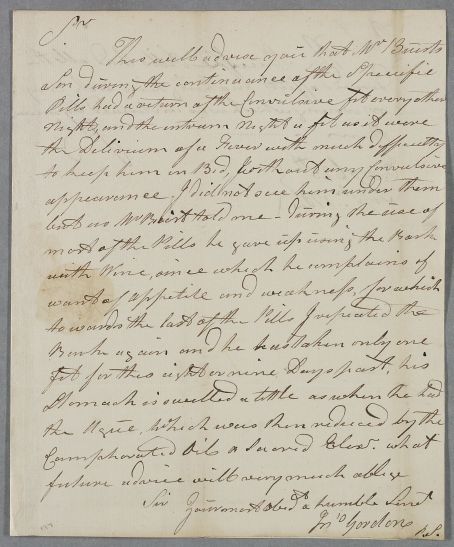 Sir
This will advise you that Mr Buists
Son during the continuance of the Specific
Pills had a return of the Convulsive fit every other
Night, and the interum Night a fit as it were
the Delirium of a Fever with much difficulty
to keep him in Bed, without any Convulsive
appearance, I did not see him under them
but as Mr Buist told me - During the use of
most of the Pills he gave up using the Bark
with Wine, since which he complains of
want of Appetite and weakness, for which
towards the last of the Pills I repeated the
Bark again and he has taken only one
fit for this eight or nine Days past, his
Stomach is swelled a little as when he had
the Ague, which was then reduced by the
Camphorated Oil & Sacred Elexr. what
future advice will very much oblige
Sir
Your most obedt & humble Servt
Jno Gordon
P.S.